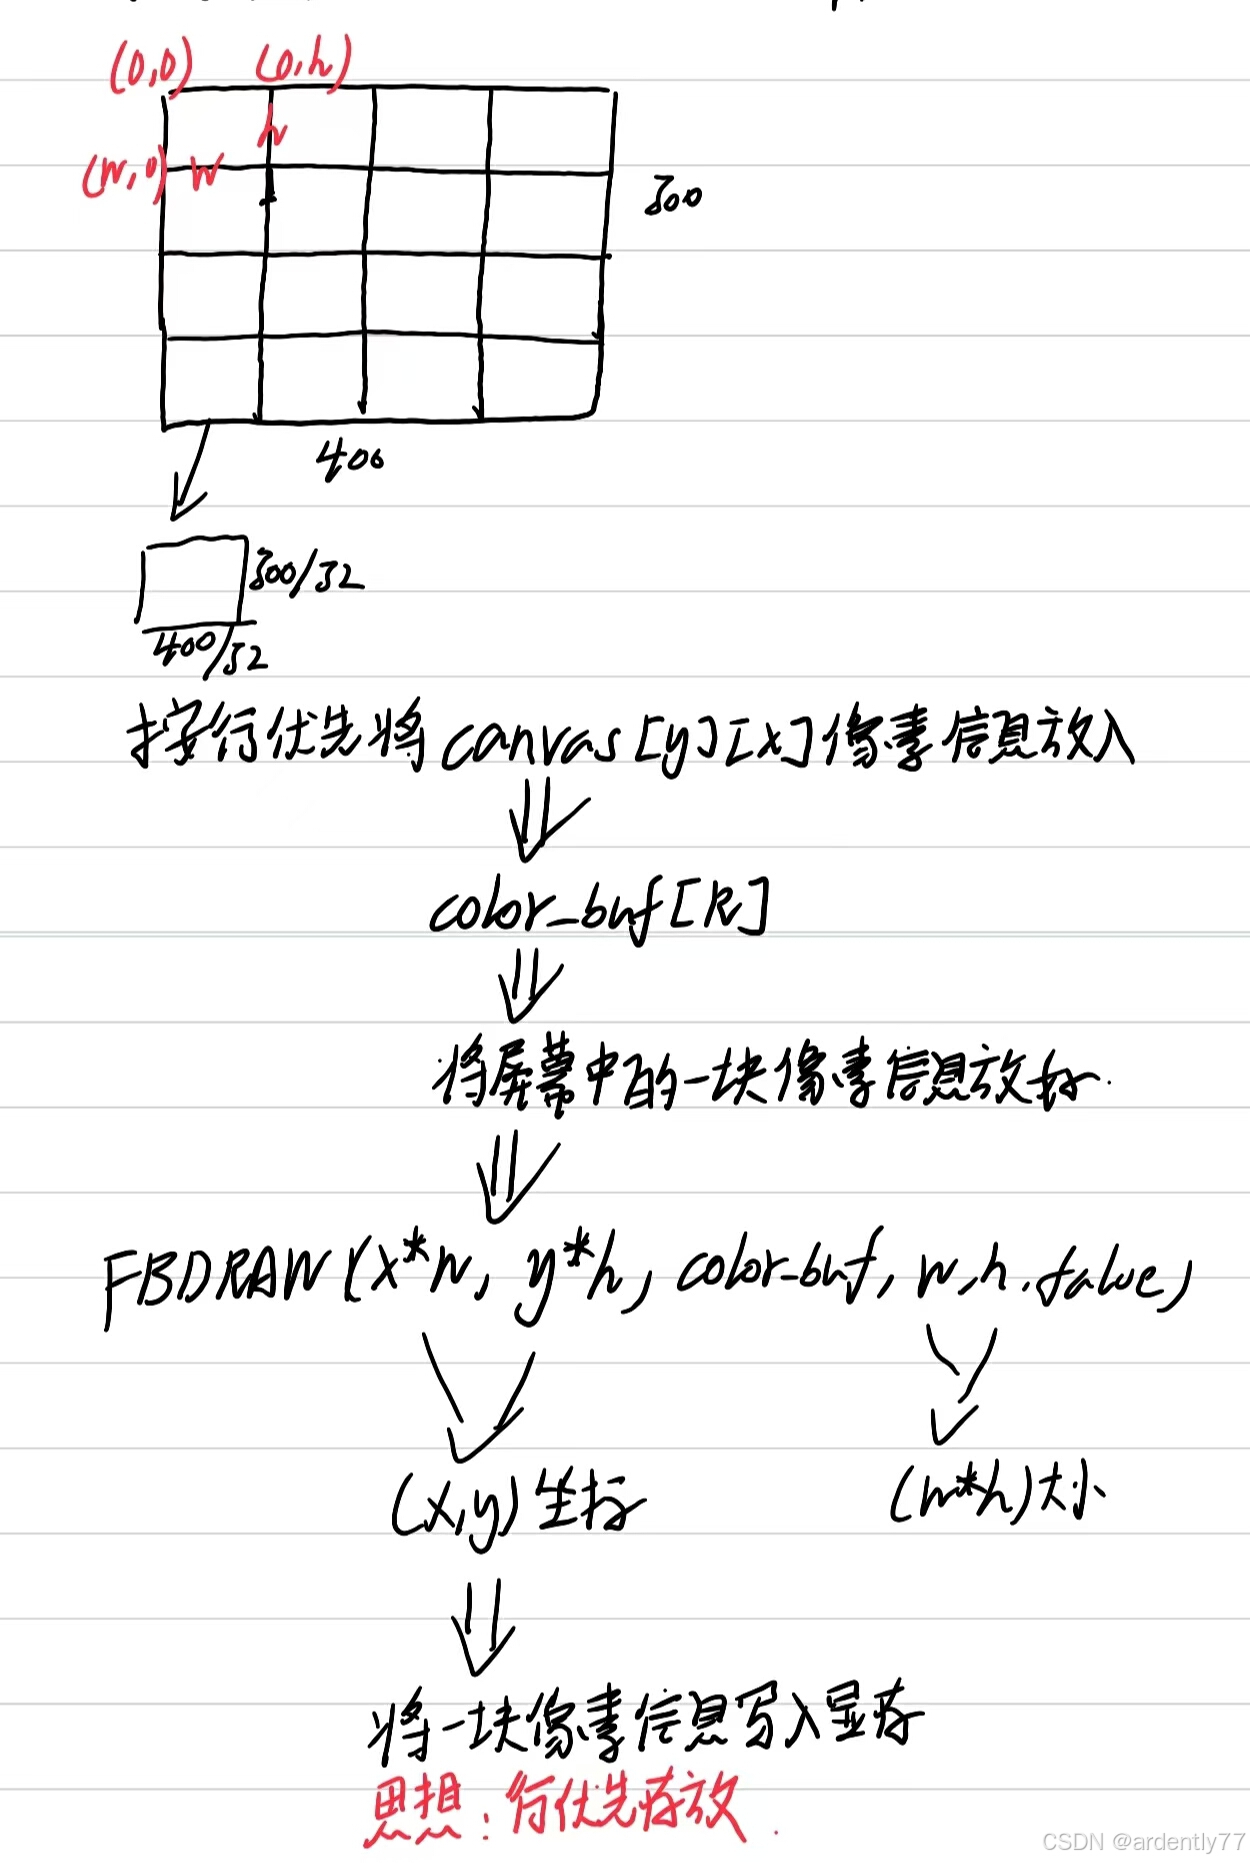 (0,0) (0,h)
h
(w,0) w
300
400
300/32
400/32
按行优先将canvas[y][x]像素信息放入
color_buf[k]
将屏幕中的一块像素信息放好.
FBDRAW(x*w, y*h, color_buf, w,h.false)
(x,y)坐标
(w*h)大小
将一块像素信息写入显存
思想:行优先存放.
CSDN @ardently77